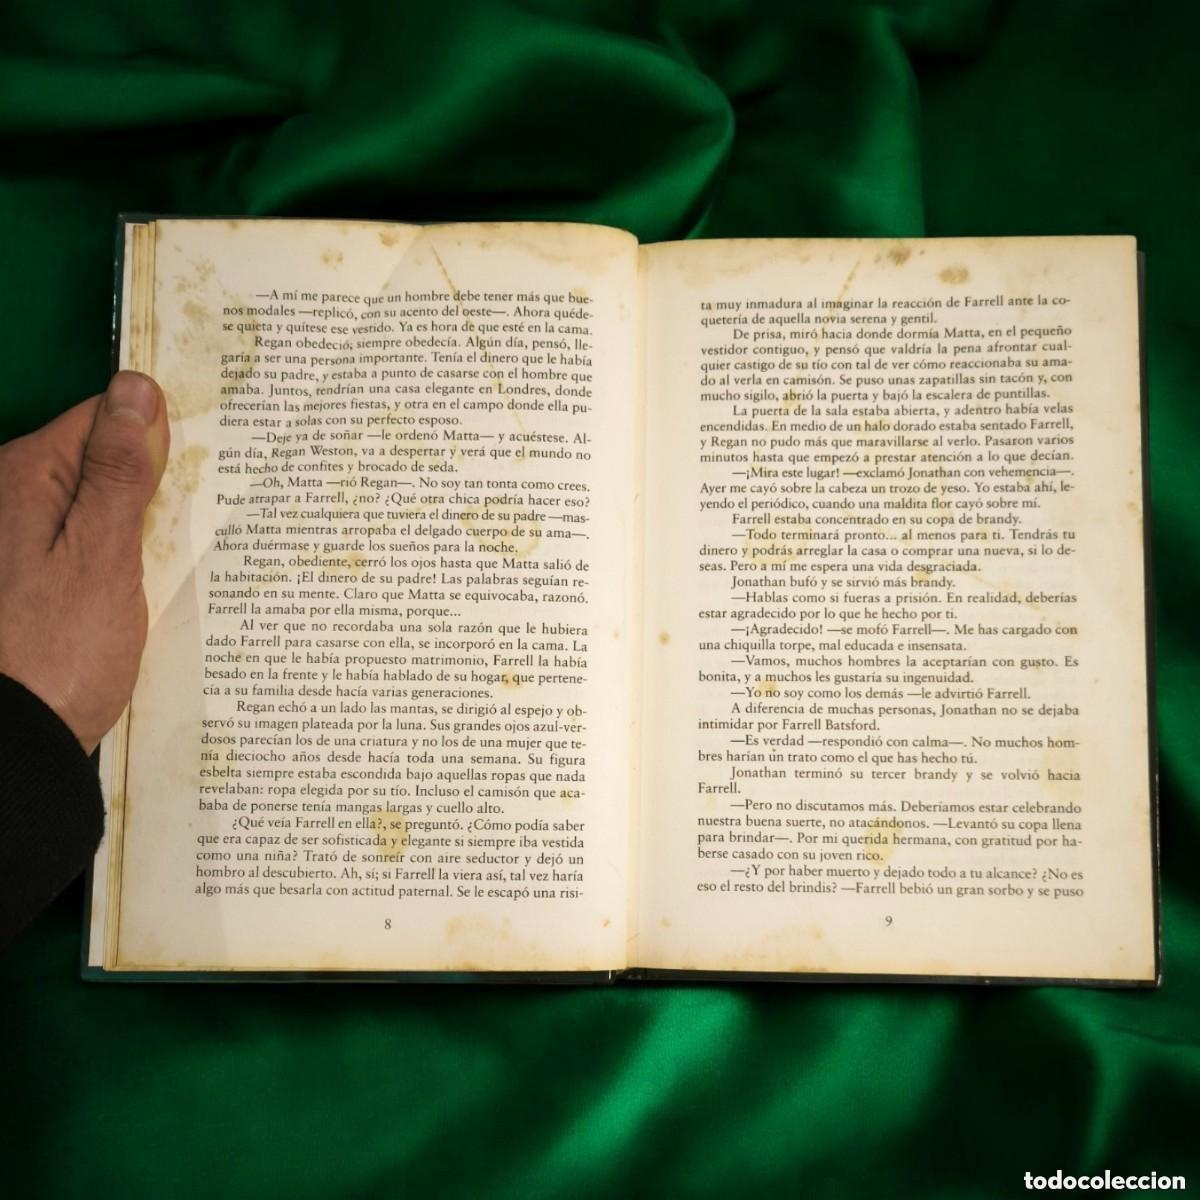 —A mí me parece que un hombre debe tener más que bue-
nos modales —replicó, con su acento del oeste—. Ahora quéde-
se quieta y quítese ese vestido. Ya es hora de que esté en la cama.
Regan obedeció; siempre obedecía. Algún día, pensó, lle-
garía a ser una persona importante. Tenía el dinero que le había
dejado su padre, y estaba a punto de casarse con el hombre que
amaba. Juntos, tendrían una casa elegante en Londres, donde
ofrecerían las mejores fiestas, y otra en el campo donde ella pu-
diera estar a solas con su perfecto esposo.
—Deje ya de soñar —le ordenó Matta— y acuéstese. Al-
gún día, Regan Weston, va a despertar y verá que el mundo no
está hecho de confites y brocado de seda.
—Oh, Matta —rió Regan—. No soy tan tonta como crees.
Pude atrapar a Farrell, ¿no? ¿Qué otra chica podría hacer eso?
—Tal vez cualquiera que tuviera el dinero de su padre —mas-
culló Matta mientras arropaba el delgado cuerpo de su ama—.
Ahora duérmase y guarde los sueños para la noche.
Regan, obediente, cerró los ojos hasta que Matta salió de
la habitación. ¡El dinero de su padre! Las palabras seguían re-
sonando en su mente. Claro que Matta se equivocaba, razonó.
Farrell la amaba por ella misma, porque...
Al ver que no recordaba una sola razón que le hubiera
dado Farrell para casarse con ella, se incorporó en la cama. La
noche en que le había propuesto matrimonio, Farrell la había
besado en la frente y le había hablado de su hogar, que pertene-
cía a su familia desde hacía varias generaciones.
Regan echó a un lado las mantas, se dirigió al espejo y ob-
servó su imagen plateada por la luna. Sus grandes ojos azul-ver-
dosos parecían los de una criatura y no los de una mujer que te-
nía dieciocho años desde hacía toda una semana. Su figura
esbelta siempre estaba escondida bajo aquellas ropas que nada
revelaban: ropa elegida por su tío. Incluso el camisón que aca-
baba de ponerse tenía mangas largas y cuello alto.
¿Qué veía Farrell en ella?, se preguntó. ¿Cómo podía saber
que era capaz de ser sofisticada y elegante si siempre iba vestida
como una niña? Trató de sonreír con aire seductor y dejó un
hombro al descubierto. Ah, sí; si Farrell la viera así, tal vez haría
algo más que besarla con actitud paternal. Se le escapó una risi-
8
ta muy inmadura al imaginar la reacción de Farrell ante la co-
quetería de aquella novia serena y gentil.
De prisa, miró hacia donde dormía Matta, en el pequeño
vestidor contiguo, y pensó que valdría la pena afrontar cual-
quier castigo de su tío con tal de ver cómo reaccionaba su ama-
do al verla en camisón. Se puso unas zapatillas sin tacón y, con
mucho sigilo, abrió la puerta y bajó la escalera de puntillas.
La puerta de la sala estaba abierta, y adentro había velas
encendidas. En medio de un halo dorado estaba sentado Farrell,
y Regan no pudo más que maravillarse al verlo. Pasaron varios
minutos hasta que empezó a prestar atención a lo que decían.
—¡Mira este lugar! —exclamó Jonathan con vehemencia—.
Ayer me cayó sobre la cabeza un trozo de yeso. Yo estaba ahí, le-
yendo el periódico, cuando una maldita flor cayó sobre mí.
Farrell estaba concentrado en su copa de brandy.
—Todo terminará pronto... al menos para ti. Tendrás tu
dinero y podrás arreglar la casa o comprar una nueva, si lo de-
seas. Pero a mí me espera una vida desgraciada.
Jonathan bufó y se sirvió más brandy.
—Hablas como si fueras a prisión. En realidad, deberías
estar agradecido por lo que he hecho por ti.
—¡Agradecido! —se mofó Farrell—. Me has cargado con
una chiquilla torpe, mal educada e insensata.
—Vamos, muchos hombres la aceptarían con gusto. Es
bonita, y a muchos les gustaría su ingenuidad.
—Yo no soy como los demás —le advirtió Farrell.
A diferencia de muchas personas, Jonathan no se dejaba
intimidar por Farrell Batsford.
—Es verdad —respondió con calma—. No muchos hom-
bres harían un trato como el que has hecho tú.
Jonathan terminó su tercer brandy y se volvió hacia
Farrell.
—Pero no discutamos más. Deberíamos estar celebrando
nuestra buena suerte, no atacándonos. —Levantó su copa llena
para brindar—. Por mi querida hermana, con gratitud por ha-
berse casado con su joven rico.
—¿Y por haber muerto y dejado todo a tu alcance? ¿No es
eso el resto del brindis? —Farrell bebió un gran sorbo y se puso
9
todocoleccion